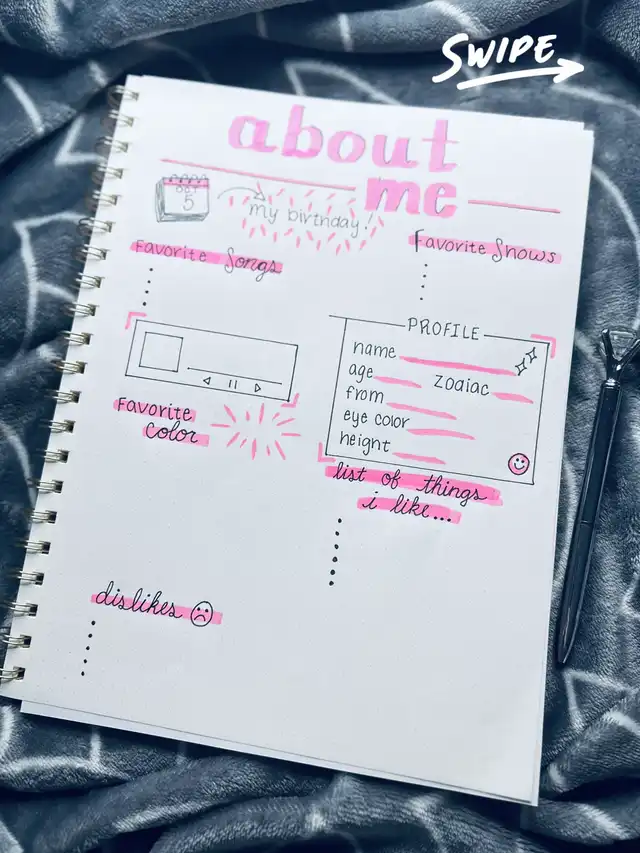 SWIPE
about
me
OCT
5
my birthday!
Favorite Songs
Favorite Shows
PROFILE
name
age
Zodiac
from
eye color
height
Favorite
color
list of things
i like...
dislikes